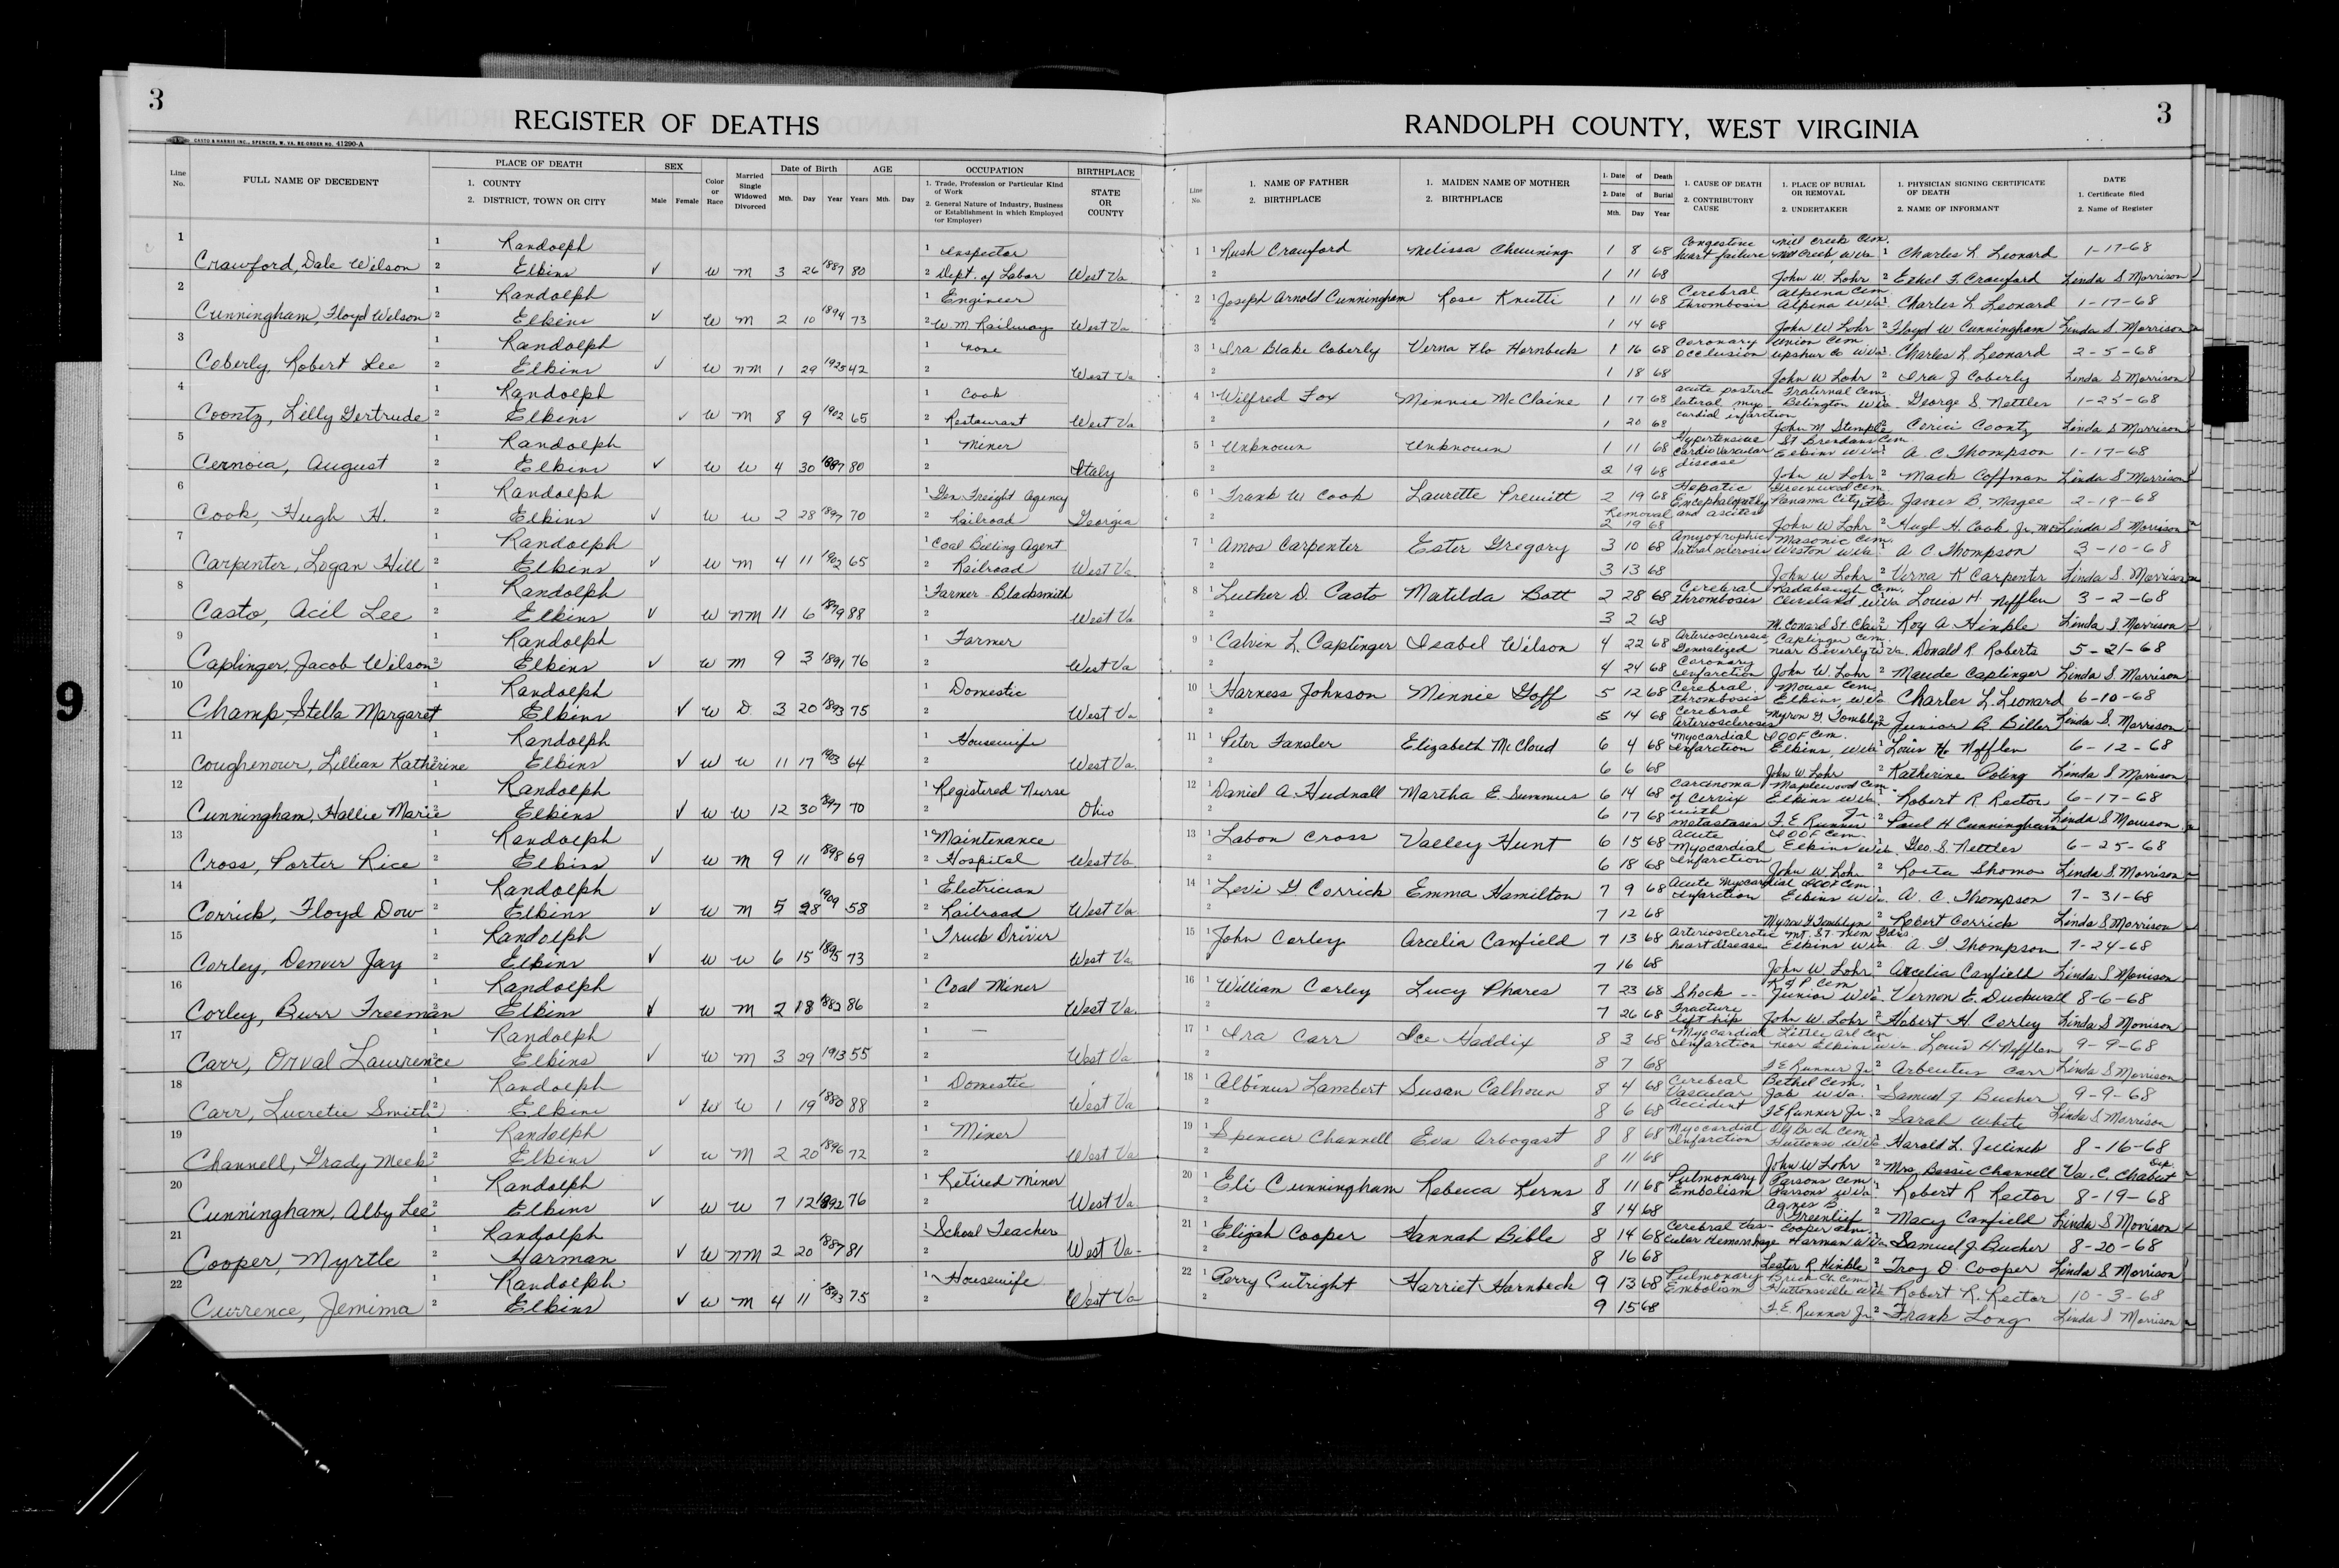 3
REGISTER OF DEATHS
CASTO & HARRIS INC., SPENCER, W. VA. RE-ORDER NO. 41290-A
Line No. FULL NAME OF DECEDENT PLACE OF DEATH 1. COUNTY 2. DISTRICT, TOWN OR CITY SEX Male Female Color or Race Married Single Widowed Divorced Date of Birth Mth. Day Year AGE Years Mth. Day OCCUPATION 1. Trade, Profession or Particular Kind of Work 2. General Nature of Industry, Business or Establishment in which Employed (or Employer) BIRTHPLACE STATE OR COUNTY
1 1 Randolph 1 Inspector
Crawford, Dale Wilson 2 Elkins ✓ W M 3 26 1887 80 2 Dept. of Labor West Va
2 1 Randolph 1 Engineer
Cunningham, Floyd Wilson 2 Elkins ✓ W M 2 10 1894 73 2 W. M. Railway West Va
3 1 Randolph 1 none
Coberly, Robert Lee 2 Elkins ✓ W nM 1 29 1925 42 2 West Va
4 1 Randolph 1 Cook
Coontz, Lilly Gertrude 2 Elkins ✓ W M 8 9 1902 65 2 Restaurant West Va
5 1 Randolph 1 Miner
Cernoia, August 2 Elkins ✓ W W 4 30 1887 80 2 Italy
6 1 Randolph 1 Gen Freight Agency
Cook, Hugh H. 2 Elkins ✓ W W 2 28 1897 70 2 Railroad Georgia
7 1 Randolph 1 Coal Billing Agent
Carpenter, Logan Hill 2 Elkins ✓ W M 4 11 1902 65 2 Railroad West Va
8 1 Randolph 1 Farmer - Blacksmith
Casto, Acil Lee 2 Elkins ✓ W nM 11 6 1879 88 2 West Va
9 1 Randolph 1 Farmer
Caplinger, Jacob Wilson 2 Elkins ✓ W M 9 3 1891 76 2 West Va
10 1 Randolph 1 Domestic
Champ, Stella Margaret Elkins ✓ W D 3 20 1893 75 2 West Va
11 1 Randolph 1 Housewife
Coughenour, Lillian Katherine 2 Elkins ✓ W W 11 17 1903 64 2 West Va.
12 1 Randolph 1 Registered Nurse
Cunningham, Hallie Marie 2 Elkins ✓ W W 12 30 1897 70 2 Ohio
13 1 Randolph 1 Maintenance
Cross, Porter Rice 2 Elkins ✓ W M 9 11 1898 69 2 Hospital West Va.
14 1 Randolph 1 Electrician
Corrick, Floyd Dow 2 Elkins ✓ W M 5 28 1909 58 2 Railroad West Va.
15 1 Randolph 1 Truck Driver
Corley, Denver Jay 2 Elkins ✓ W W 6 15 1895 73 2 West Va.
16 1 Randolph 1 Coal Miner
Corley, Burr Freeman 2 Elkins ✓ W M 2 18 1882 86 2 West Va.
17 1 Randolph 1 —
Carr, Orval Lawrence 2 Elkins ✓ W M 3 29 1913 55 2 West Va
18 1 Randolph 1 Domestic
Carr, Lucretie Smith 2 Elkins ✓ W W 1 19 1880 88 2 West Va
19 1 Randolph 1 Miner
Channell, Grady Meek 2 Elkins ✓ W M 2 20 1896 72 2 West Va
20 1 Randolph 1 Retired Miner
Cunningham, Alby Lee 2 Elkins ✓ W W 7 12 1892 76 2 West Va.
21 1 Randolph 1 School Teacher
Cooper, Myrtle 2 Harman ✓ W nM 2 20 1887 81 2 West Va-
22 1 Randolph 1 Housewife
Currence, Jemima 2 Elkins ✓ W M 4 11 1893 75 2 West Va
9
RANDOLPH COUNTY, WEST VIRGINIA
3
Line No. 1. NAME OF FATHER 2. BIRTHPLACE 1. MAIDEN NAME OF MOTHER 2. BIRTHPLACE 1. Date of Death 2. Date of Burial Mth. Day Year 1. CAUSE OF DEATH 2. CONTRIBUTORY CAUSE 1. PLACE OF BURIAL OR REMOVAL 2. UNDERTAKER 1. PHYSICIAN SIGNING CERTIFICATE OF DEATH 2. NAME OF INFORMANT DATE 1. Certificate filed 2. Name of Register
1 1 Rush Crawford Melissa Chewning 1 8 68 Congestive heart failure Mill Creek Cem. Mill Creek, W Va 1 Charles L Leonard 1-17-68
2 1 11 68 John W. Lohr 2 Ethel F. Crawford Linda S Morrison
2 1 Joseph Arnold Cunningham Rose Knutti 1 11 68 Cerebral thrombosis Alpena Cem Alpena W Va 1 Charles L Leonard 1-17-68
2 1 14 68 John W Lohr 2 Floyd W Cunningham Linda S. Morrison
3 1 Ira Blake Coberly Verna Flo Hornbeck 1 16 68 Coronary Occlusion Union Cem Upshur Co W Va 1 Charles L Leonard 2-5-68
2 1 18 68 John W Lohr 2 Ira J Coberly Linda S Morrison
4 1 Wilfred Fox Minnie McClaine 1 17 68 acute postero lateral myocardial infarction Fraternal Cem Belington W Va George S. Nettles 1-25-68
2 1 20 68 John M Stemple 2 Coontz Linda S Morrison
5 1 Unknown Unknown 1 11 68 Hypertensive Cardio Vascular disease St Brendans Cem. Elkins W Va 1 A. C. Thompson 1-17-68
2 2 19 68 John W Lohr 2 Mack Coffman Linda S Morrison
6 1 Frank W Cook Laurette Prewitt 2 19 68 Hepatic Encephalopathy and ascites Greenwood Cem Panama City, Fla James B. Magee 2-19-68
2 Removal 2 19 68 John W Lohr 2 Hugh H. Cook Jr. Linda S Morrison
7 1 Amos Carpenter Ester Gregory 3 10 68 Amyotrophic lateral sclerosis Masonic Cem. Weston W Va 1 A C Thompson 3-10-68
2 3 13 68 John W Lohr 2 Verna K Carpenter Linda S. Morrison
8 1 Luther D. Casto Matilda Bott 2 28 68 Cerebral thrombosis Radabaugh Cem. Cleveland W Va Louis H. Nefflen 3-2-68
2 3 2 68 M. Conard St Clair 2 Roy A Hinkle Linda S Morrison
9 1 Calvin L. Caplinger Isabel Wilson 4 22 68 Arteriosclerosis Generalized Caplinger Cem. near Beverly W Va. Donald R Roberts 5-21-68
2 4 24 68 Coronary Infarction John W. Lohr 2 Maude Caplinger Linda S. Morrison
10 1 Harness Johnson Minnie Goff 5 12 68 Cerebral thrombosis Mouse Cem. Elkins, W Va 1 Charles L. Leonard 6-10-68
2 5 14 68 Cerebral Arteriosclerosis Myron G. Tomblyn 2 Junior B Biller Linda S. Morrison
11 1 Peter Fansler Elizabeth McCloud 6 4 68 Myocardial Infarction IOOF Cem. Elkins, W Va 1 Louis H. Nefflen 6-12-68
6 6 68 John W. Lohr 2 Katherine Poling Linda S Morrison
12 1 Daniel A. Hudnall Martha E. Summers 6 14 68 Carcinoma of Cervix with metastasis Maplewood Cem Elkins W Va. Robert R Rector 6-17-68
6 17 68 F. E Runner Jr. 2 Paul H Cunningham Linda S Morrison
13 1 Labon Cross Valley Hunt 6 15 68 Acute Myocardial Infarction IOOF Cem. Elkins W Va 1 Geo. S. Nettles 6-25-68
2 6 18 68 John W. Lohr 2 Roeta Shomo Linda S. Morrison
14 1 Levi G. Corrick Emma Hamilton 7 9 68 Acute Myocardial Infarction IOOF Cem. Elkins W Va 1 A. C. Thompson 7-31-68
2 7 12 68 Myron G Tomblyn 2 Robert Corrick Linda S Morrison
15 1 John Corley Arcelia Canfield 7 13 68 Arteriosclerotic heart disease Mt. St. Mem Gdns. Elkins W Va A. G Thompson 7-24-68
7 16 68 John W. Lohr 2 Arcelia Canfield Linda S Morrison
16 1 William Corley Lucy Phares 7 23 68 Shock -- K of P Cem Junior W Va. 1 Vernon E. Duckwall 8-6-68
2 7 26 68 Fracture left hip John W. Lohr 2 Hobert H. Corley Linda S Morrison
17 1 Ira Carr Ice Haddix 8 3 68 Myocardial Infarction Little Arl Cem near Elkins W Va Louis H Nefflen 9-9-68
2 8 7 68 F E Runner Jr 2 Arbeutus Carr Linda S Morrison
18 1 Albinus Lambert Susan Calhoun 8 4 68 Cerebral Vascular Accident Bethel Cem. Job W Va. 1 Samuel J Bucher 9-9-68
8 6 68 F E Runner Jr. 2 Sarah White Linda S Morrison
19 1 Spencer Channell Eva Arbogast 8 8 68 Myocardial Infarction Old Brick Cem. Huttonsv W Va 1 Harold L. Jellinek 8-16-68
2 8 11 68 John W Lohr 2 Mrs Bessie Channell Va. C. Chabut Dep.
20 1 Eli Cunningham Rebecca Kerns 8 11 68 Pulmonary Embolism Parsons Cem. Parsons W Va 1 Robert R Rector 8-19-68
8 14 68 Agnes B Greenlief 2 Macy Canfield Linda S Morrison
21 1 Elijah Cooper Hannah Bible 8 14 68 Cerebral Vascular Hemorrhage Cooper Cem. Harman W Va. Samuel J. Bucher 8-20-68
2 8 16 68 Lester R. Hinkle 2 Troy O Cooper Linda S. Morrison
22 1 Perry Cutright Harriet Hornbeck 9 13 68 Pulmonary Embolism Brick Ch. Cem Huttonsville W Va 1 Robert R. Rector 10-3-68
2 9 15 68 F. E. Runner Jr. 2 Frank Long Linda S Morrison